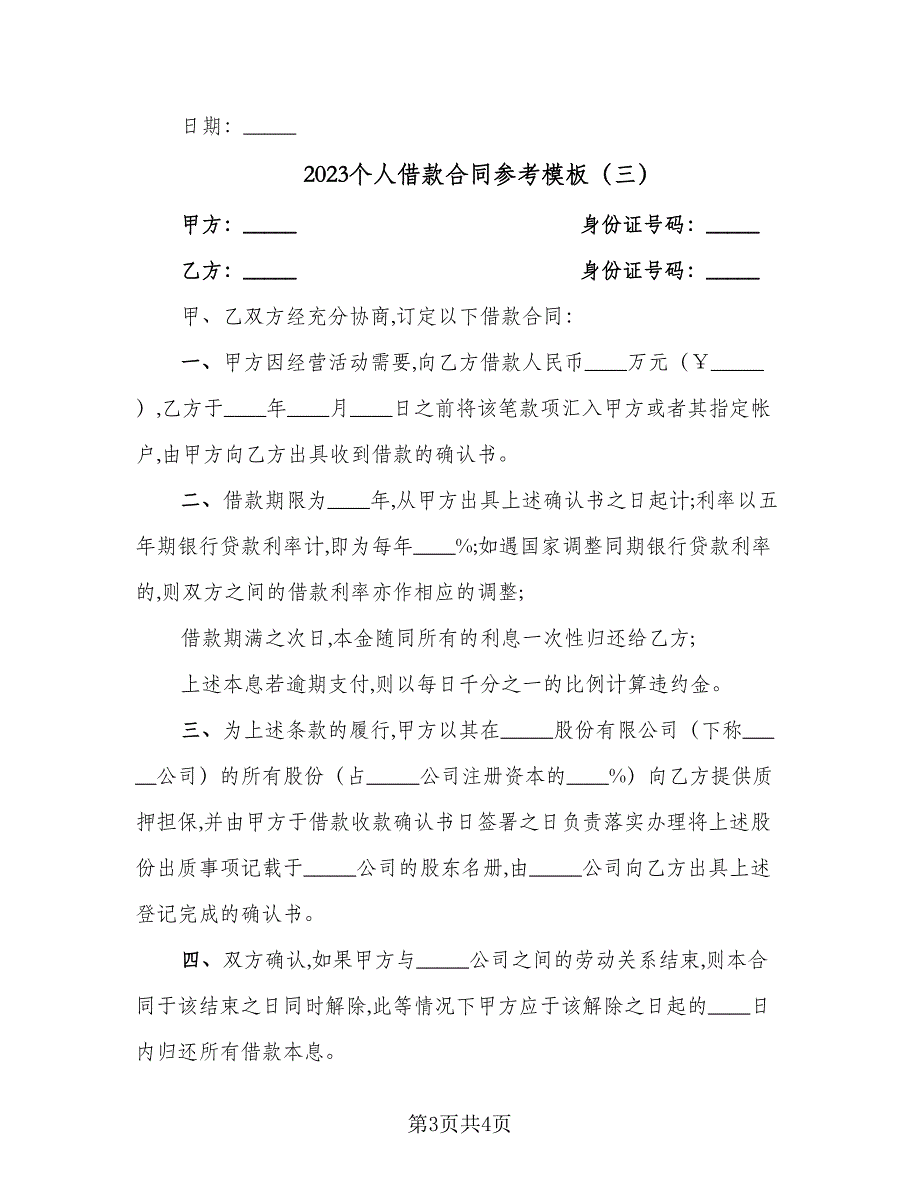 日期：_____
2023个人借款合同参考模板（三）
甲方：_____ 身份证号码：_____
乙方：_____ 身份证号码：_____
甲、乙双方经充分协商,订定以下借款合同:
一、甲方因经营活动需要,向乙方借款人民币____万元（￥_____
）,乙方于____年____月____日之前将该笔款项汇入甲方或者其指定帐
户,由甲方向乙方出具收到借款的确认书。
二、借款期限为____年,从甲方出具上述确认书之日起计;利率以五
年期银行贷款利率计,即为每年____%;如遇国家调整同期银行贷款利率
的,则双方之间的借款利率亦作相应的调整;
借款期满之次日,本金随同所有的利息一次性归还给乙方;
上述本息若逾期支付,则以每日千分之一的比例计算违约金。
三、为上述条款的履行,甲方以其在_____股份有限公司（下称___
__公司）的所有股份（占_____公司注册资本的____%）向乙方提供质
押担保,并由甲方于借款收款确认书日签署之日负责落实办理将上述股
份出质事项记载于_____公司的股东名册,由_____公司向乙方出具上述
登记完成的确认书。
四、双方确认,如果甲方与_____公司之间的劳动关系结束,则本合
同于该结束之日同时解除,此等情况下甲方应于该解除之日起的____日
内归还所有借款本息。
第3页共4页